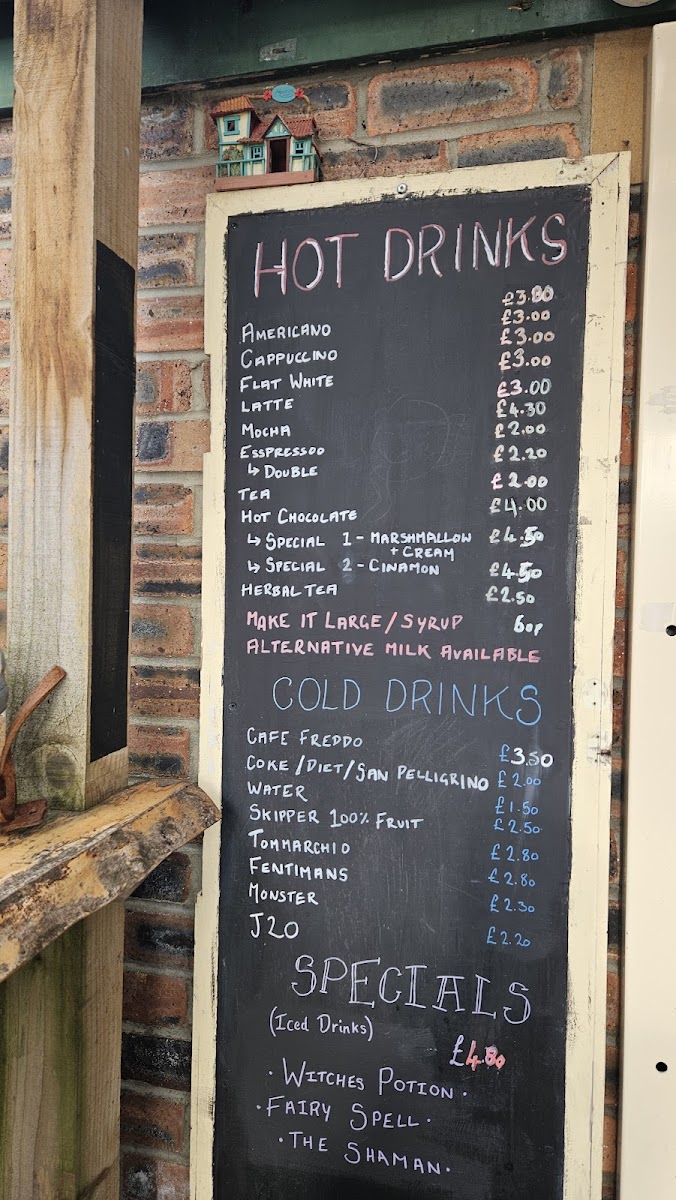 HOT DRINKS
£3.80
AMERICANO £3.00
CAPPUCCINO £3.00
FLAT WHITE £3.00
LATTE £3.00
MOCHA £4.30
ESSPRESSOO £2.00
↳ DOUBLE £2.20
TEA £2.00
HOT CHOCOLATE £4.00
↳ SPECIAL 1 - MARSHMALLOW £4.50
+ CREAM
↳ SPECIAL 2 - CINAMON £4.50
HERBAL TEA £2.50
MAKE IT LARGE / SYRUP 60P
ALTERNATIVE MILK AVAILABLE
COLD DRINKS
CAFE FREDDO £3.50
COKE / DIET / SAN PELLIGRINO £2.00
WATER £1.50
SKIPPER 100% FRUIT £2.50
TOMMARCHIO £2.80
FENTIMANS £2.80
MONSTER £2.30
J20 £2.20
SPECIALS
(Iced Drinks)
£4.80
· WITCHES POTION ·
· FAIRY SPELL ·
· THE SHAMAN ·